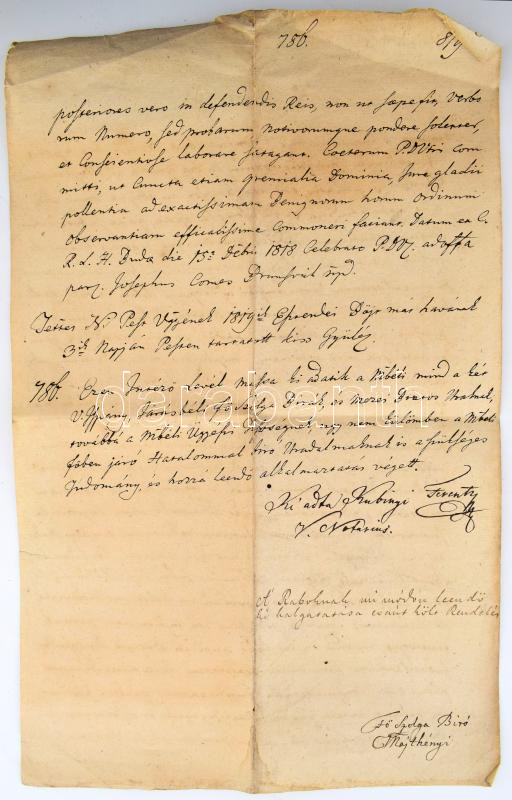 786. 819
posteriores vero in defendendis Reis, non ut saepe fit, Verbo
rum Numero, sed probarum motivorumque pondere solenter,
et Conscientiose laborare satagant. Coeterum P.DVris com
mitti, ut Cuncta etiam gremialia Dominia, Jure gladii
pollentia ad exactissimam Benignorum horum Ordinum
observantiam efficacissime Commoneri faciant. Datum ex C.
R. L. H. Buda die 15a Xbris 1818 Celebrato P.DV. ad offa
par. Josephus Comes Brunsvik mpr.
Tettes N. Pest Vgyének 1819ik Esztendei Böjt más havának
3ik Napján Pesten tartatott kiss Gyűlés.
786. Ezen Intéző Levél massa ki adatik a Nbéli mind a két
V. Ispány, Városbéli fő Szolga Birák, és Mezei Orvos Uraknak,
továbbá a Nbéli Ügyész Uraságnak, úgy nem külömben a Nbéli
főben járó Hatalommal biro Uradalmaknak is a szükséges
Tudomány, és hozzá leendő alkalmaztatás végett.
Ki adta Kubinyi Ferentz
V. Notarius.
A Raboknak mi módon leendő
ki halgatatása eránt költ Rendelés
Fő Szolga Biró
Majthényi
darabanth